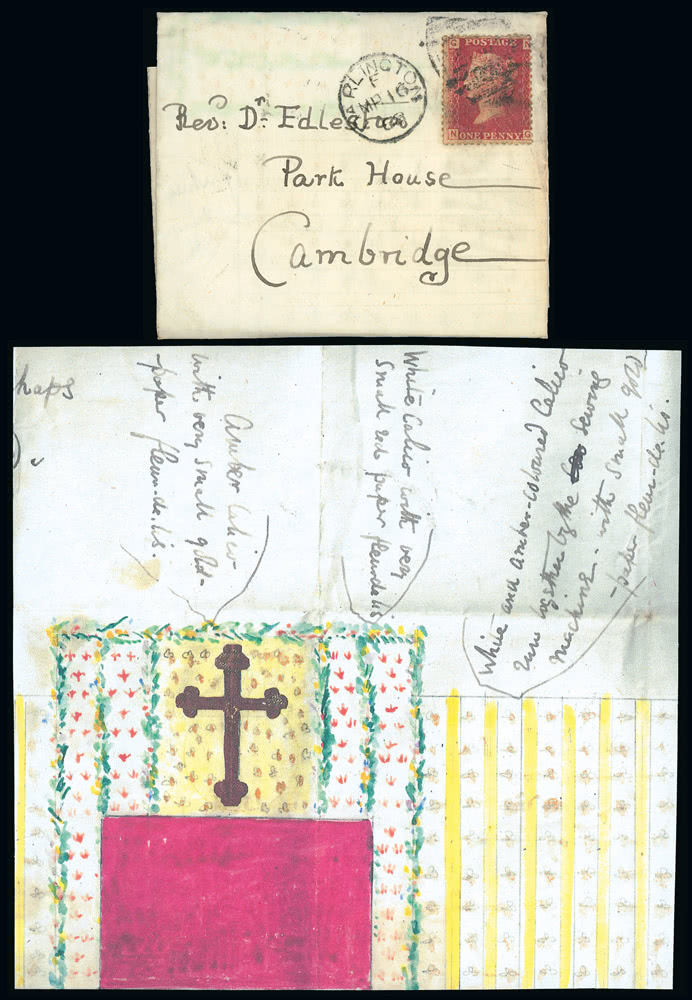 DARLINGTON
F
MR 16
68
POSTAGE
N ONE PENNY G
Rev: Dr. Edleston
Park House
Cambridge
haps
Amber Calico
with very small gold-
paper fleur-de-lis.
White Calico with very
small red paper fleur de lis
White and Amber-coloured Calico
run together by the sewing
machine - with small gold
-paper fleur-de-lis.